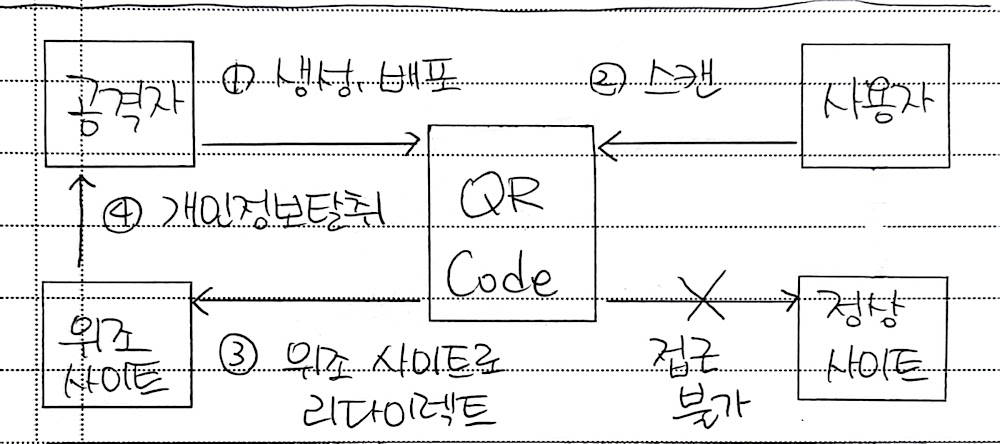 공격자
① 생성, 배포
② 스캔
사용자
QR
Code
④ 개인정보탈취
위조
사이트
③ 위조 사이트로
리다이렉트
접근
불가
정상
사이트